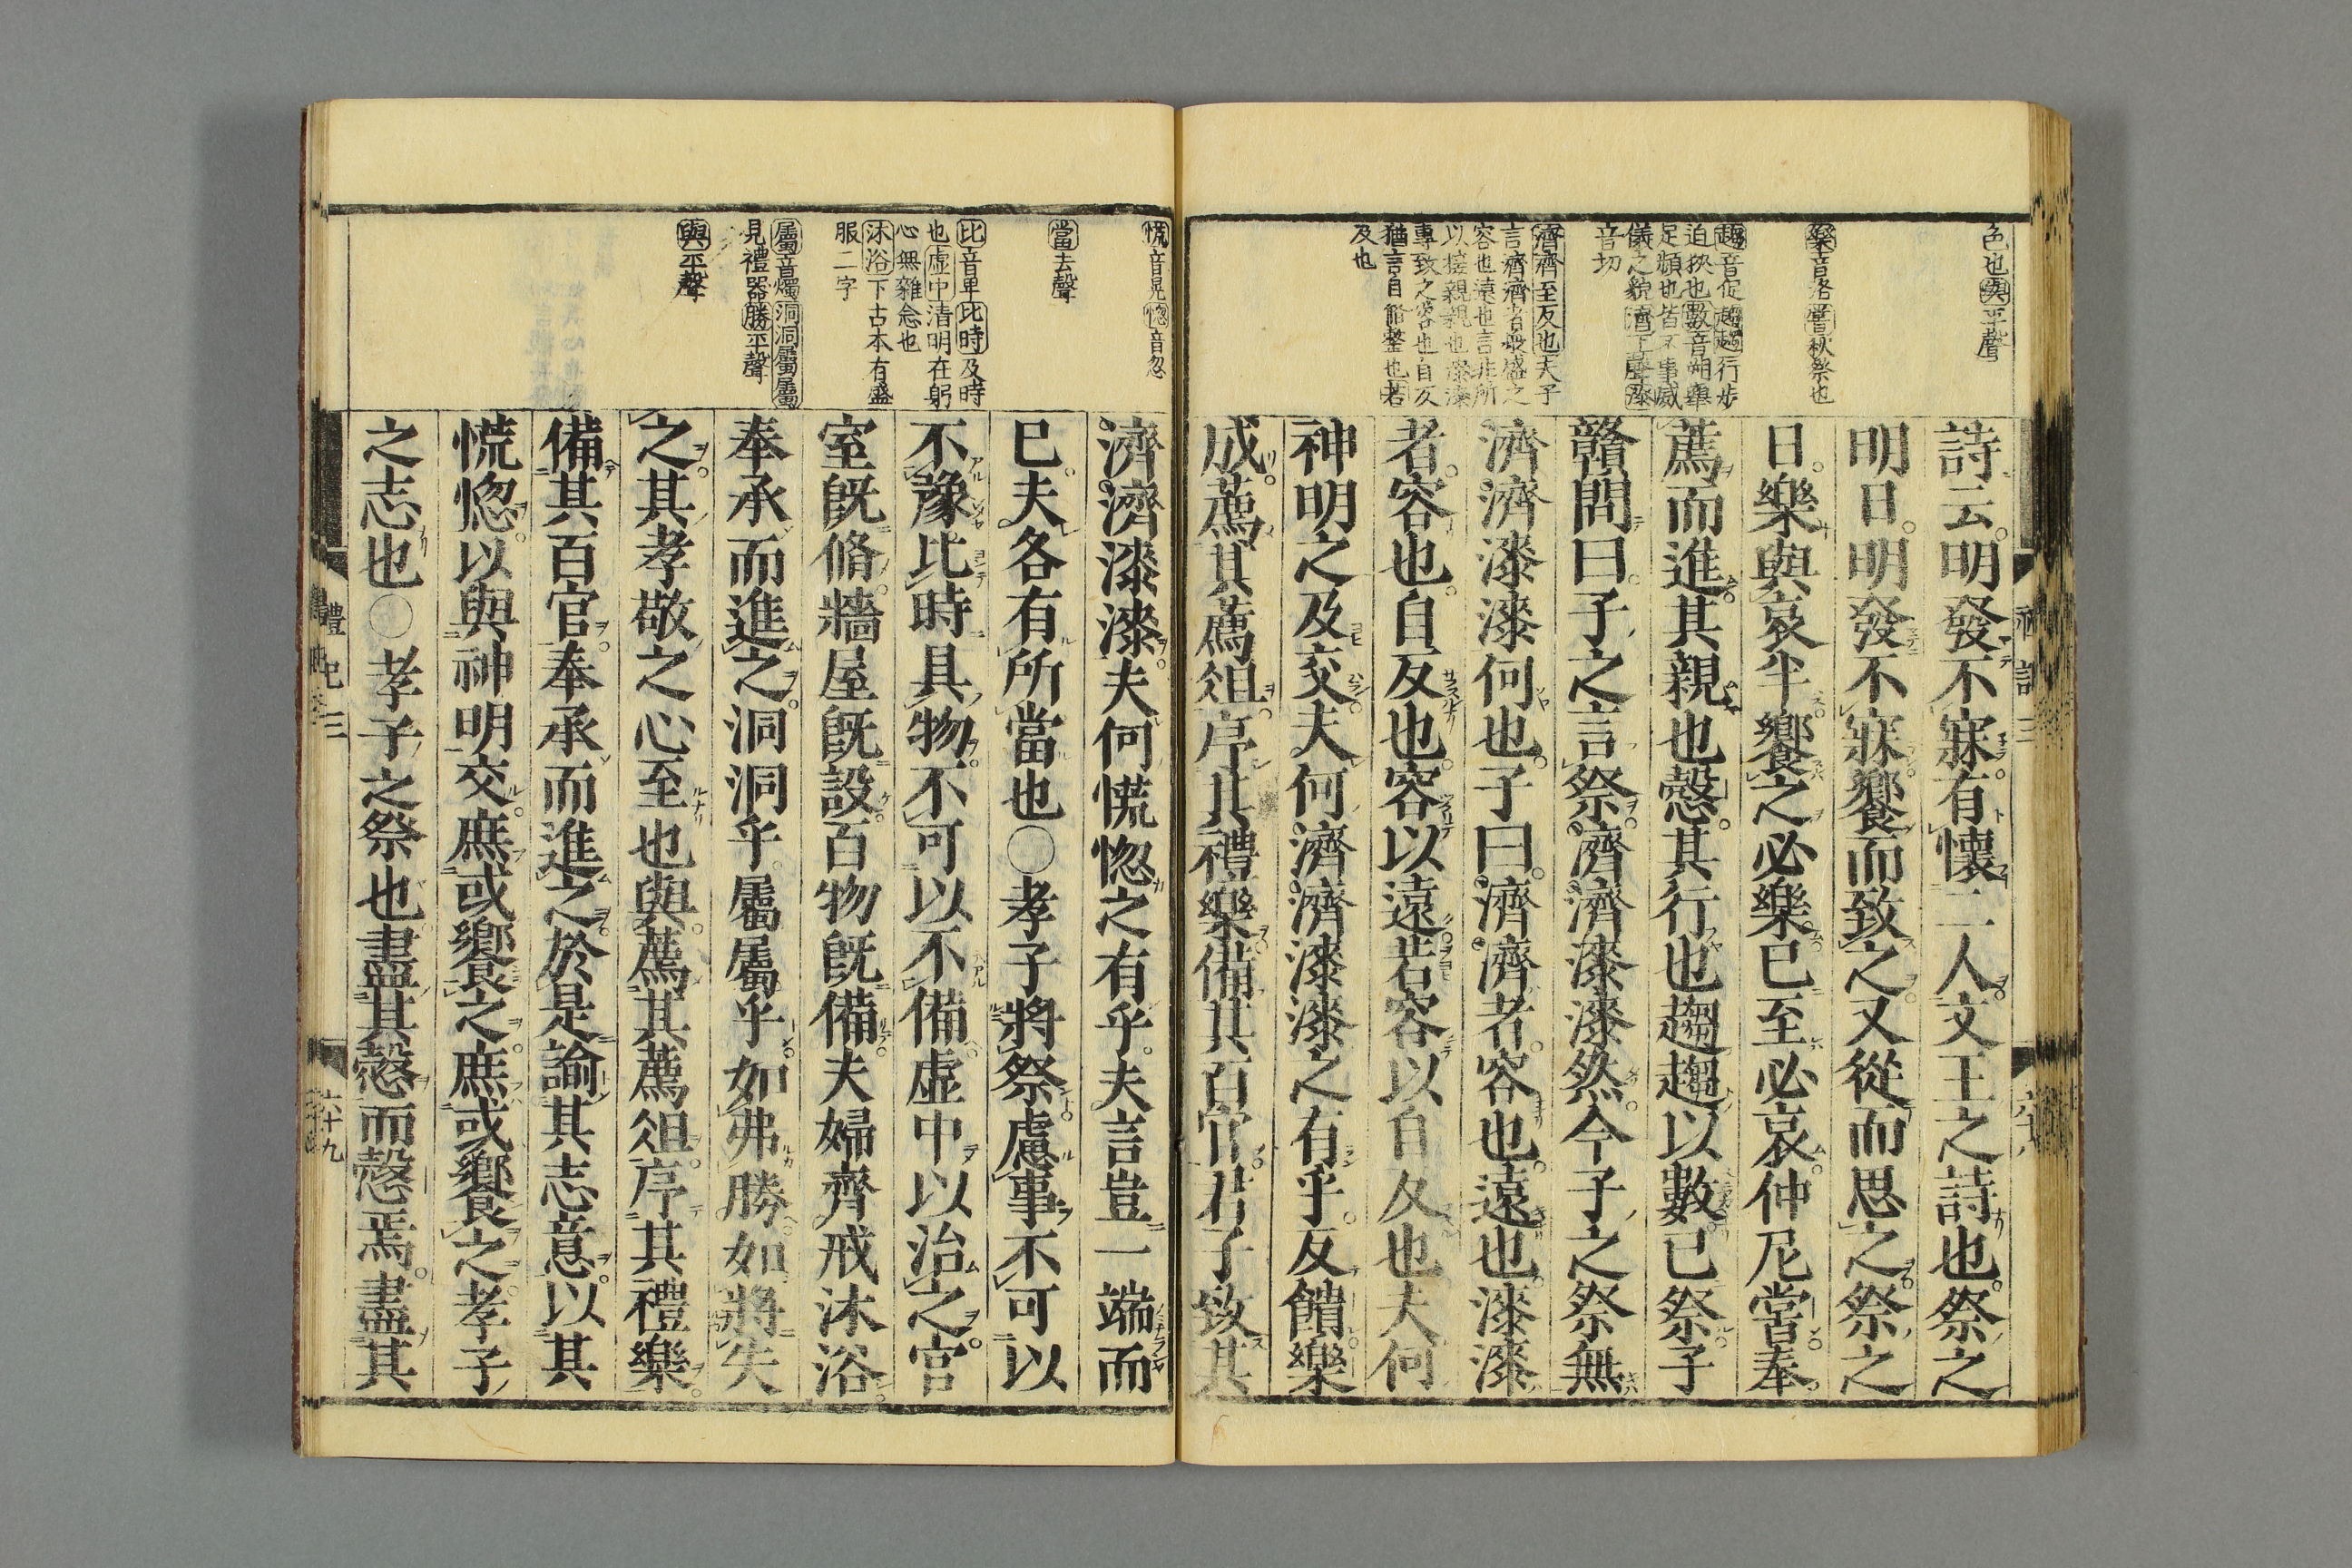 色也與平聲
樂音洛嘗秋祭也
趨音促趨趨行步
迫狹也數音朔舉
足頻也皆不事威
儀之貌濟上聲漆
音切
濟濟至反也夫子
言濟濟者衆盛之
容也遠也言非所
以接親親也漆漆
專致之容也自反
猶言自脩整也若
及也
詩云明發不寐有懷二人文王之詩也祭之
明日明發不寐饗而致之又從而思之祭之
日樂與哀半饗之必樂已至必哀仲尼嘗奉
薦而進其親也愨其行也趨趨以數已祭子
贛問曰子之言祭濟濟漆漆然今子之祭無
濟濟漆漆何也子曰濟濟者容也遠也漆漆
者容也自反也容以遠若容以自反也夫何
神明之及交夫何濟濟漆漆之有乎反饋樂
成薦其薦俎序其禮樂備其百官君子致其
慌音晃惚音忽
當去聲
比音畀比時及時
也虛中清明在躬
心無雜念也
沐浴下古本有盛
服二字
屬音燭洞洞屬屬
見禮器勝平聲
與平聲
濟濟漆漆夫何慌惚之有乎夫言豈一端而
已夫各有所當也○孝子將祭慮事不可以
不豫比時具物不可以不備虛中以治之宮
室既脩牆屋既設百物既備夫婦齊戒沐浴
奉承而進之洞洞乎屬屬乎如弗勝如將失
之其孝敬之心至也與薦其薦俎序其禮樂
備其百官奉承而進之於是諭其志意以其
慌惚以與神明交庶或饗之庶或饗之孝子
之志也○孝子之祭也盡其愨而愨焉盡其
禮記三
六十九